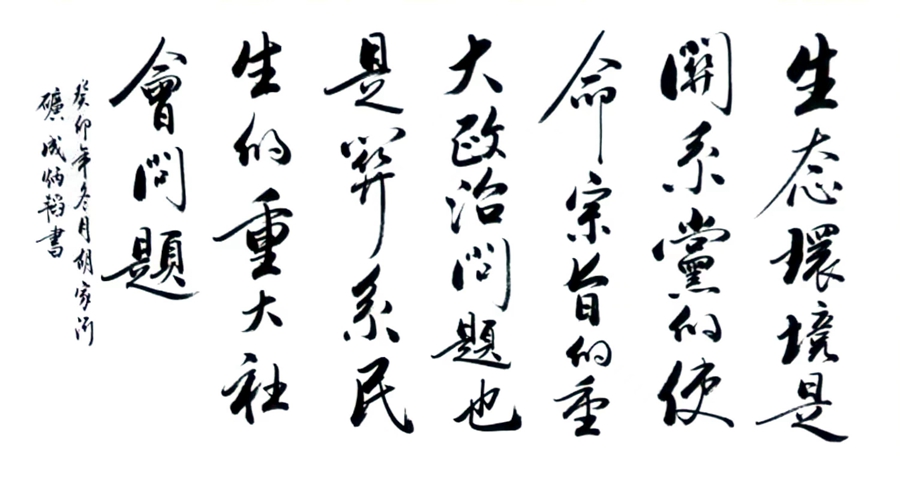 生态環境是
關系黨的使
命宗旨的重
大政治問題也
是關系民
生的重大社
會問題
癸卯年冬月胡家河
礦成炳韜書